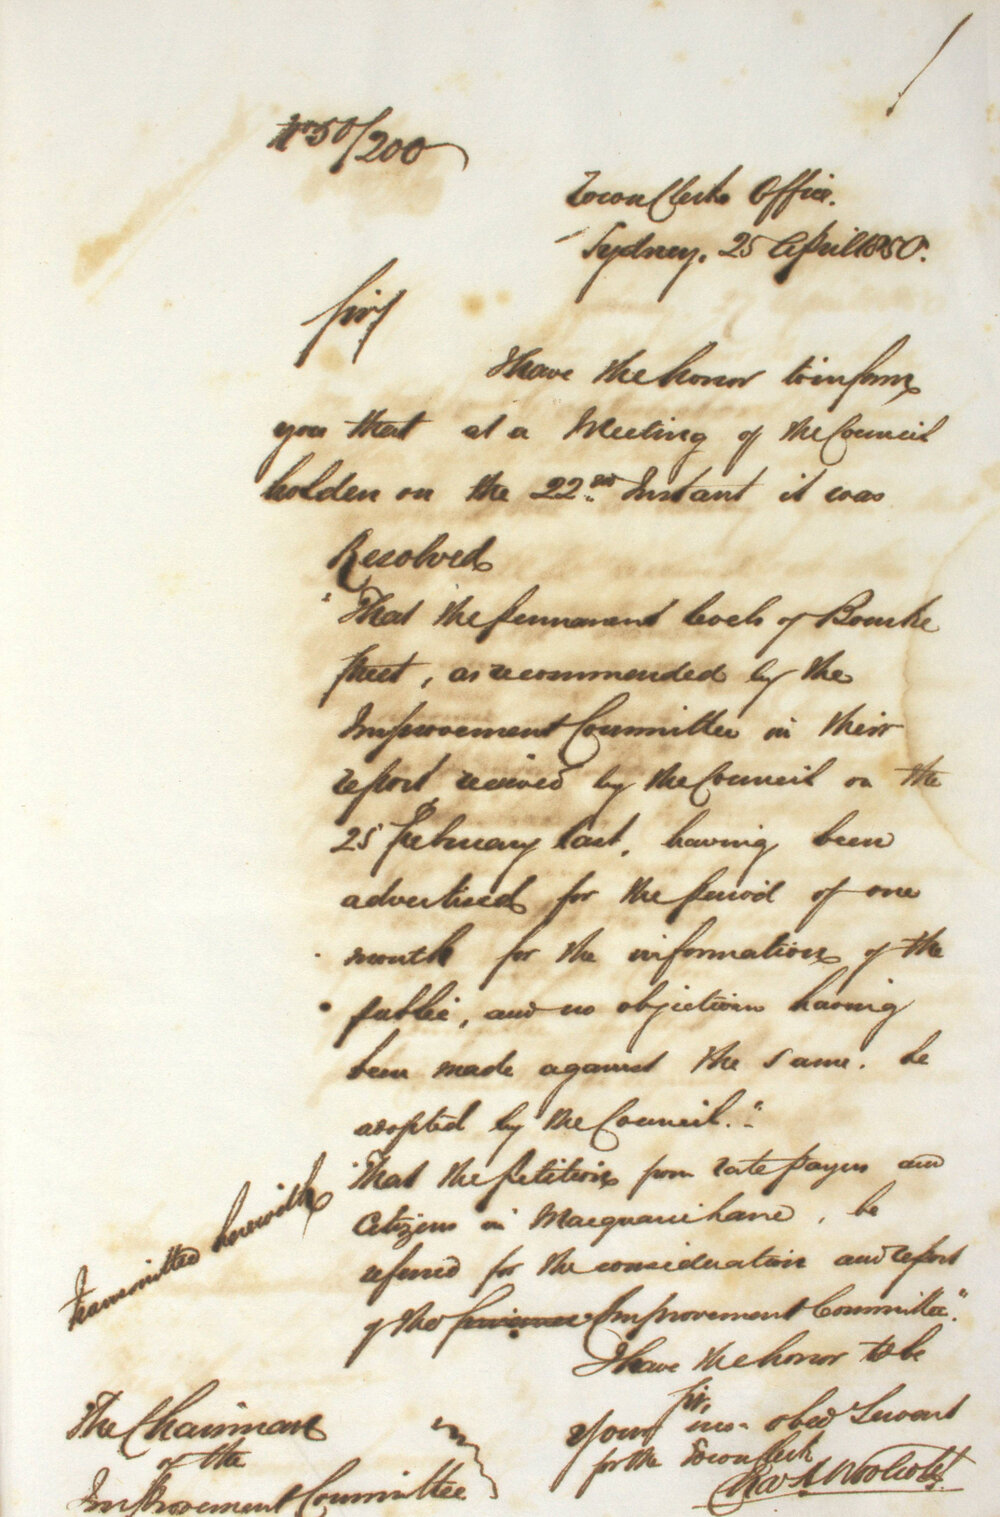 No 50/200
Town Clerks Office.
Sydney. 25 April 1850.
Sir,
I have the honor to inform
you that at a Meeting of the Council
holden on the 22nd Instant it was
Resolved
"That the permanent levels of Bourke
street, as recommended by the
Improvement Committee in their
report received by the Council on the
25 February last, having been
advertised for the period of one
month for the information of the
public, and no objection having
been made against the same. be
adopted by the Council."
"That the petition from rate payers and
Citizens in Macquarie lane, be
referred for the consideration and report
of the Finance Improvement Committee."
Transmitted herewith
I have the honor to be
Sir,
Your mo. obed Servant
for the Town Clerk
The Chairman
of the
Improvement Committee